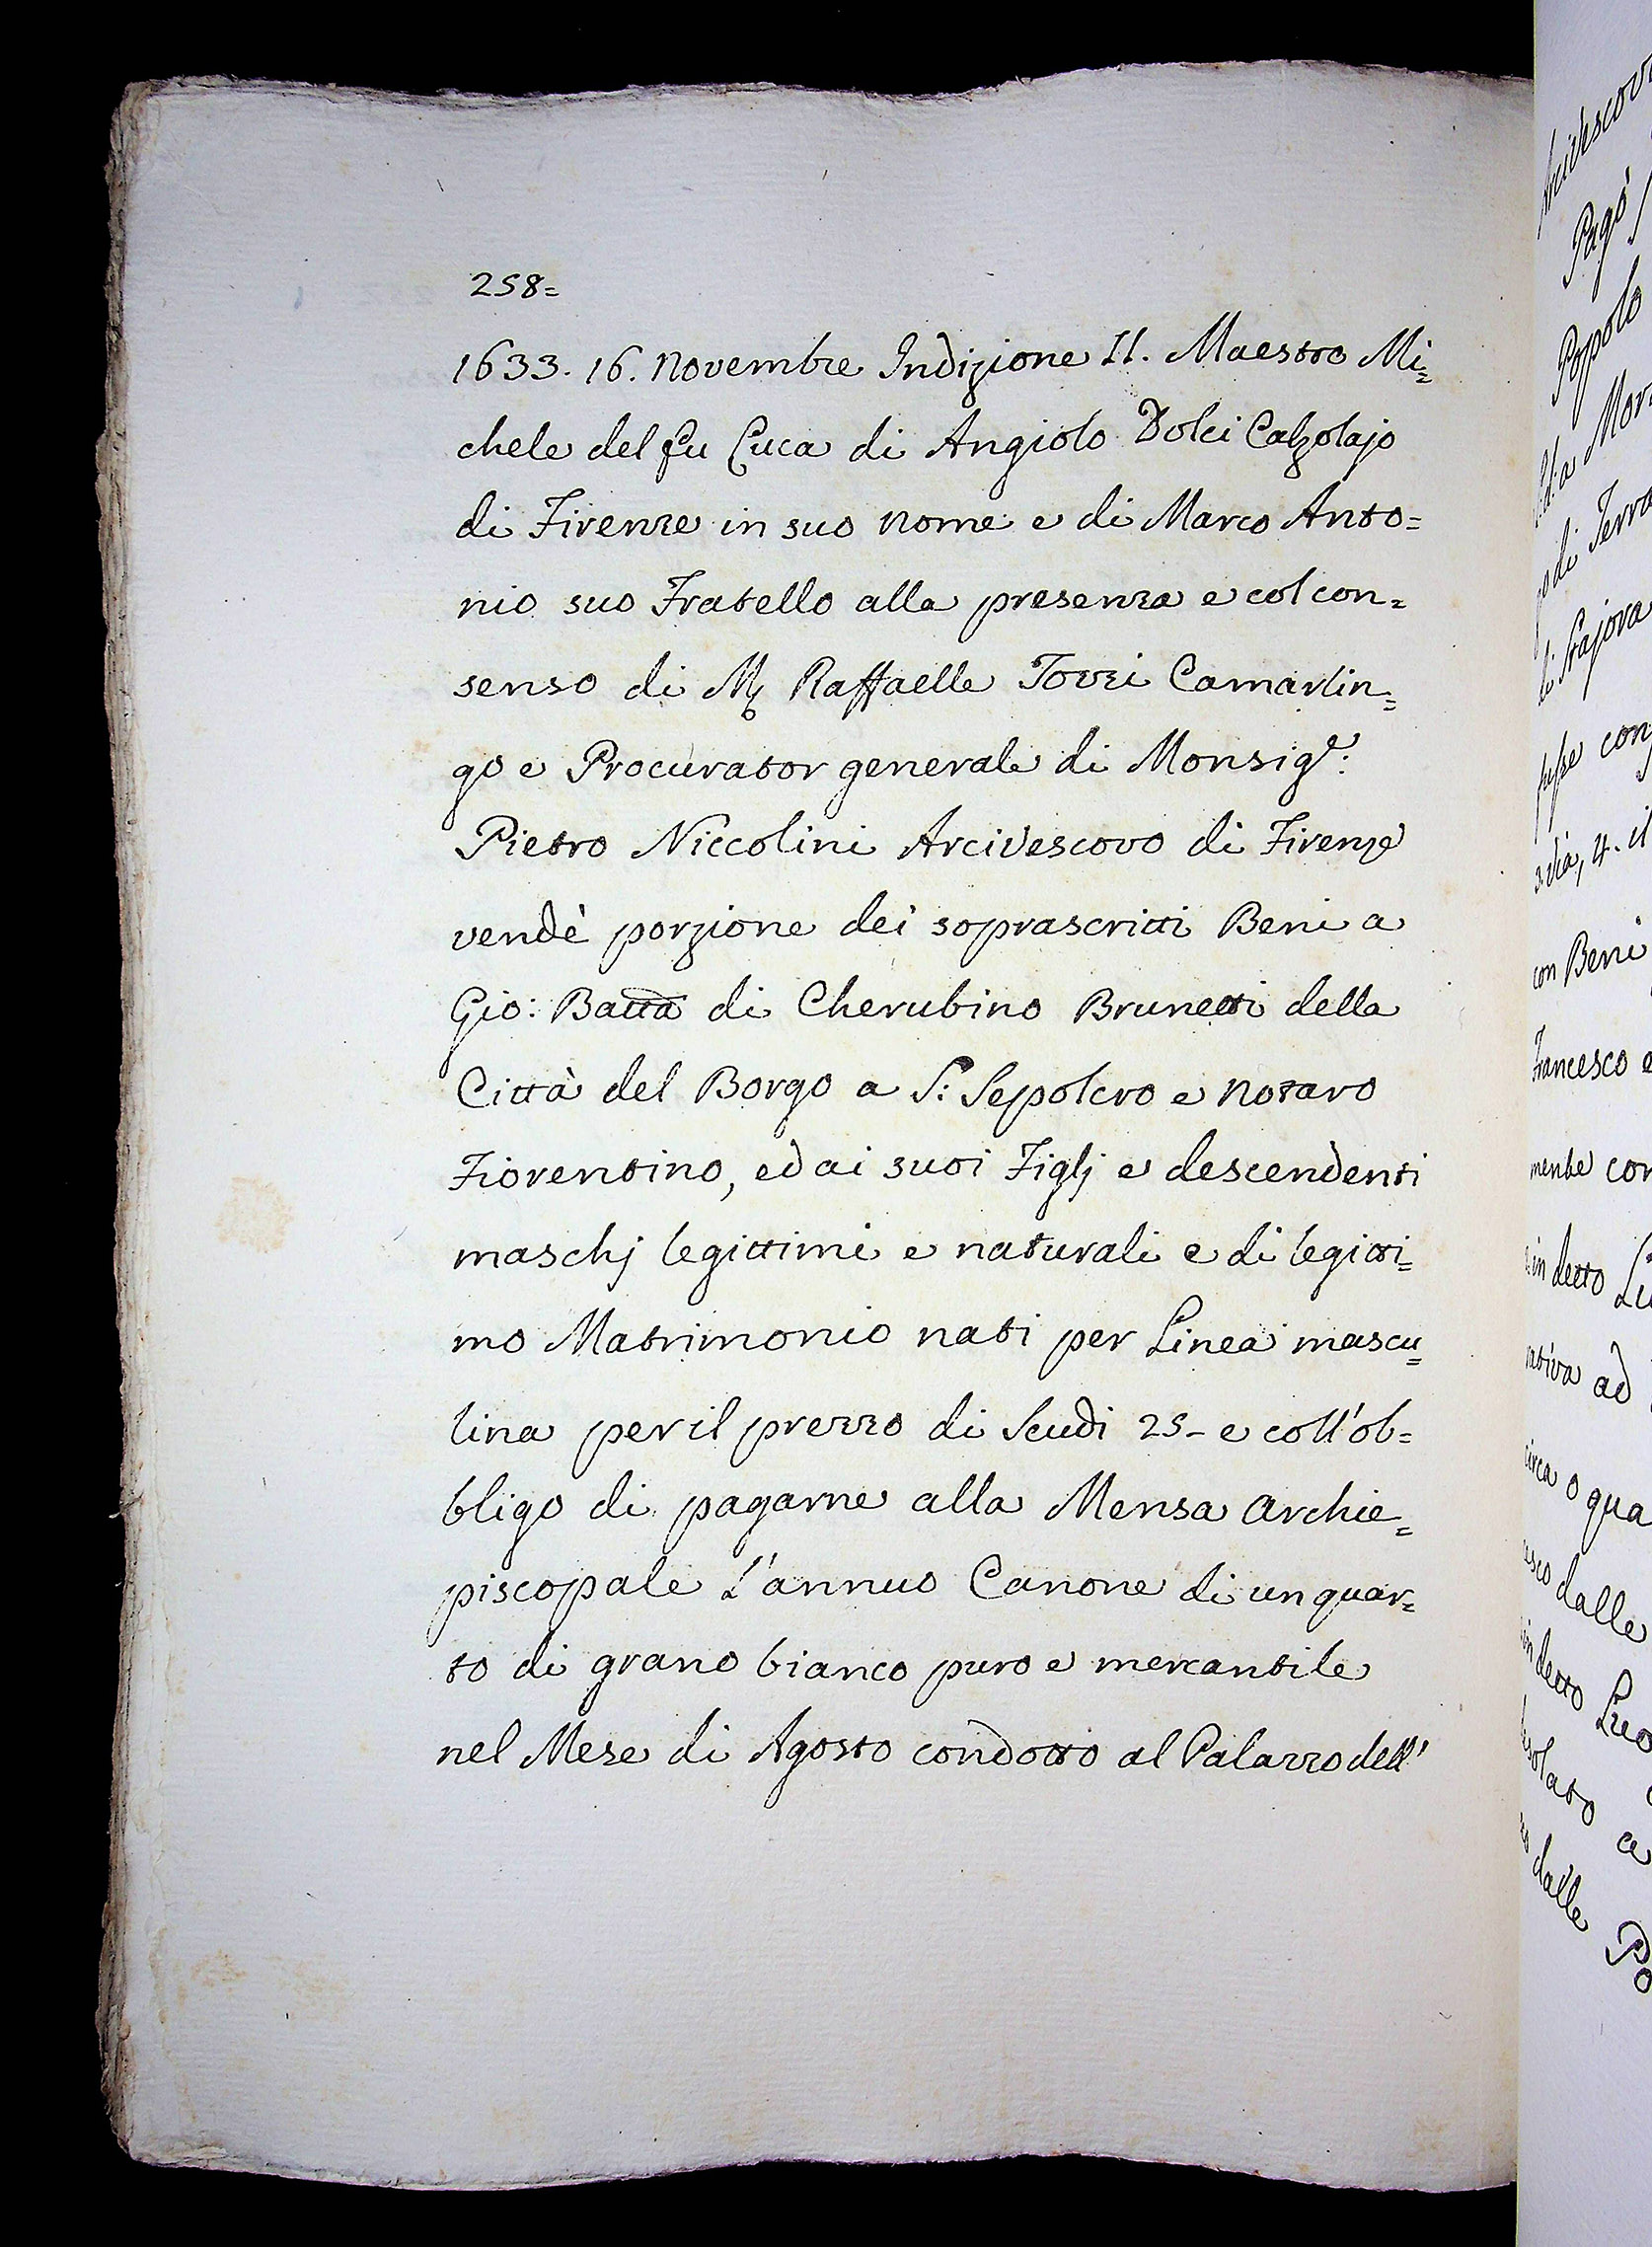 258=
1633. 16. Novembre Indizione II. Maestro Mi=
chele del fu Luca di Angiolo Dolci Calzolajo
di Firenze in suo nome e di Marco Anto=
nio suo Fratello alla presenza e col con=
senso di M. Raffaelle Torri Camarlin=
go e Procurator generale di Monsigr:
Pietro Niccolini Arcivescovo di Firenze
vendè porzione dei soprascritti Beni a
Gio: Batta di Cherubino Brunetti della
Città del Borgo a S: Sepolcro e Notaro
Fiorentino, ed ai suoi Figlj e descendenti
maschj legittimi e naturali e di legitti=
mo Matrimonio nati per Linea mascu=
lina per il prezzo di Scudi 25- e coll'ob=
bligo di pagarne alla Mensa Archie=
piscopale L'annuo Canone di un quar=
to di grano bianco puro e mercantile
nel Mese di Agosto condotto al Palazzo dell'
Pagò
Popolo
di Terra
con
4. il
con Beni
Francesco e
in detto
ad
circa o qua
dalle
in detto
dalle